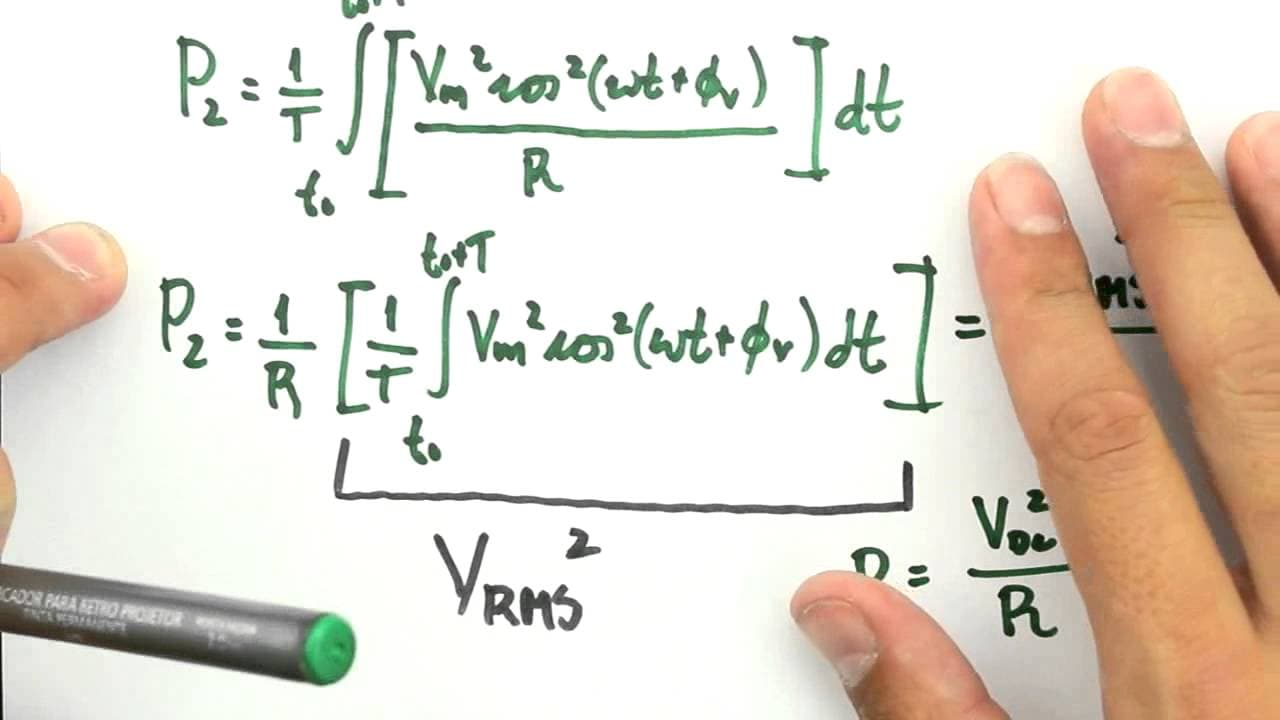 P₂ = 1/T ∫ t₀ [Vm² cos²(ωt+ϕv) / R] dt
P₂ = 1/R [1/T ∫ t₀ t₀+T Vm² cos²(ωt+ϕv) dt] =
VRMS²
VDC² / R
PARA RETRO PROJETOR